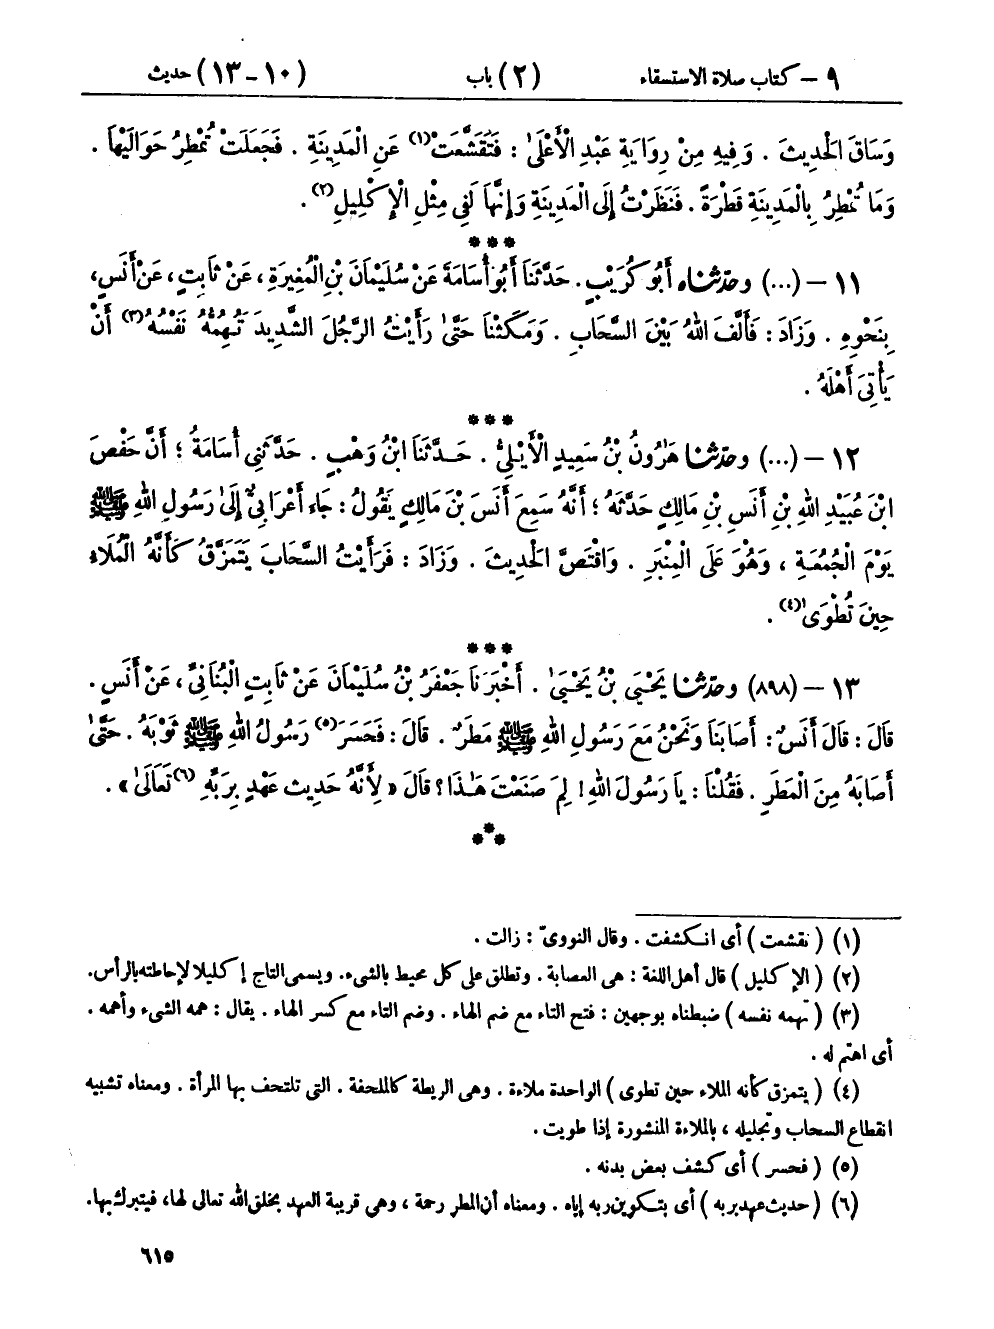 ٩ – كتاب صلاة الاستسقاء (٢) باب (١٠ – ١٣) حديث
وَسَاقَ الْحَدِيثَ . وَفِيهِ مِنْ رِوَايَةِ عَبْدِ الْأَعْلَىٰ : فَتَقَشَّعَتْ(١) عَنِ الْمَدِينَةِ . فَجَعَلَتْ تُمْطِرُ حَوَالَيْهَا .
وَمَا تُمْطِرُ بِالْمَدِينَةِ قَطْرَةً . فَنَظَرْتُ إِلَى الْمَدِينَةِ وَإِنَّهَا لَفِي مِثْلِ الْإِكْلِيلِ(٢) .
***
١١ – (...) وحَدَّثَنَاهُ أَبُو كُرَيْبٍ . حَدَّثَنَا أَبُو أُسَامَةَ عَنْ سُلَيْمَانَ بْنِ الْمُغِيرَةِ ، عَنْ ثَابِتٍ ، عَنْ أَنَسٍ ،
بِنَحْوِهِ . وَزَادَ : فَأَلَّفَ اللهُ بَيْنَ السَّحَابِ . وَمَكَثْنَا حَتَّىٰ رَأَيْتُ الرَّجُلَ الشَّدِيدَ تَهُمُّهُ نَفْسُهُ(٣) أَنْ
يَأْتِىَ أَهْلَهُ .
***
١٢ – (...) وحَدَّثَنَا هَٰرُونُ بْنُ سَعِيدٍ الْأَيْلِيُّ . حَدَّثَنَا ابْنُ وَهْبٍ . حَدَّثَنِي أُسَامَةُ ؛ أَنَّ حَفْصَ
ابْنَ عُبَيْدِ اللهِ بْنِ أَنَسِ بْنِ مَالِكٍ حَدَّثَهُ ؛ أَنَّهُ سَمِعَ أَنَسَ بْنَ مَالِكٍ يَقُولُ : جَاءَ أَعْرَابِيٌّ إِلَىٰ رَسُولِ اللهِ ﷺ
يَوْمَ الْجُمُعَةِ ، وَهُوَ عَلَى الْمِنْبَرِ . وَاقْتَصَّ الْحَدِيثَ . وَزَادَ : فَرَأَيْتُ السَّحَابَ يَتَمَزَّقُ كَأَنَّهُ الْمُلَاءُ
حِينَ تُطْوَىٰ(٤) .
***
١٣ – (٨٩٨) وحَدَّثَنَا يَحْيَىٰ بْنُ يَحْيَىٰ . أَخْبَرَنَا جَعْفَرُ بْنُ سُلَيْمَانَ عَنْ ثَابِتٍ الْبُنَانِيِّ ، عَنْ أَنَسٍ .
قَالَ : قَالَ أَنَسٌ : أَصَابَنَا وَنَحْنُ مَعَ رَسُولِ اللهِ ﷺ مَطَرٌ . قَالَ : فَحَسَرَ(٥) رَسُولُ اللهِ ﷺ ثَوْبَهُ . حَتَّىٰ
أَصَابَهُ مِنَ الْمَطَرِ . فَقُلْنَا : يَا رَسُولَ اللهِ ! لِمَ صَنَعْتَ هَٰذَا ؟ قَالَ « لِأَنَّهُ حَدِيث عَهْدٍ بِرَبِّهِ (٦) تَعَالَىٰ » .
***
(١) ( تقشعت ) أى انكشفت . وقال النووىّ : زالت .
(٢) ( الإكليل ) قال أهل اللغة : هى العصابة . وتطلق على كل محيط بالشىء . ويسمى التاج إكليلا لإحاطته بالرأس .
(٣) ( تهمه نفسه ) ضبطناه بوجهين : فتح التاء مع ضم الهاء . وضم التاء مع كسر الهاء . يقال : همه الشىء وأهمه .
أى اهتم له .
(٤) ( يتمزق كأنه الملاء حين تطوى ) الواحدة ملاءة . وهى الريطة كالملحفة . التى تلتحف بها المرأة . ومعناه تشبيه
انقطاع السحاب وتجليله ، بالملاءة المنشورة إذا طويت .
(٥) ( فحسر ) أى كشف بعض بدنه .
(٦) ( حديث عهد بربه ) أى بتكوين ربه إياه . ومعناه أن المطر رحمة ، وهى قريبة العهد بخلق الله تعالى لها ، فيتبرك بها .
٦١٥